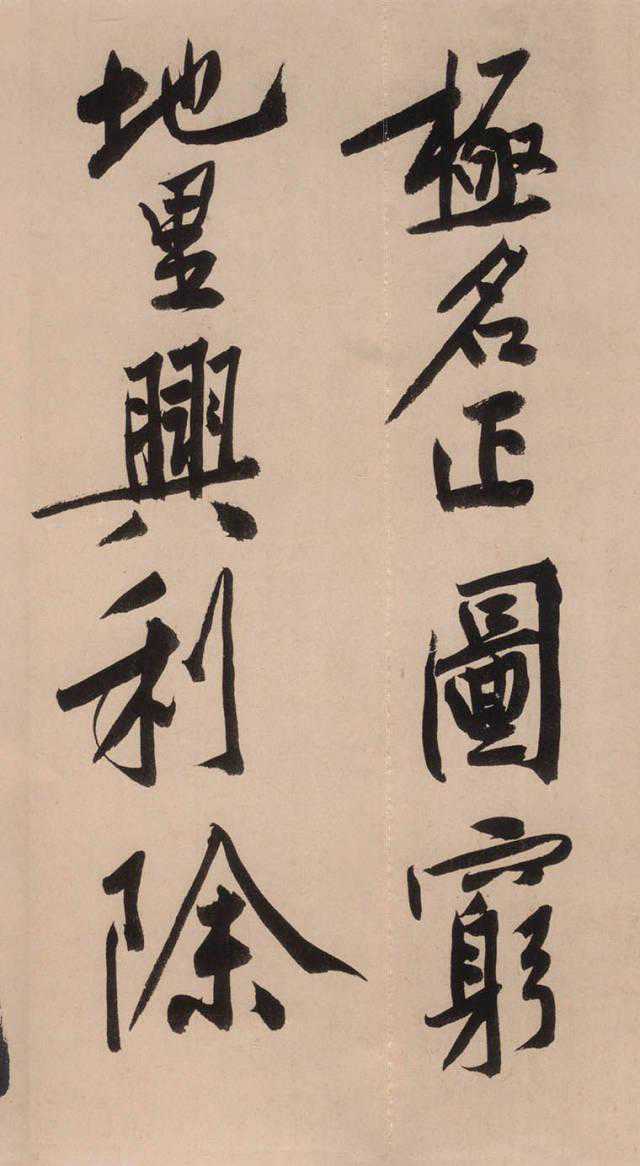 極名正圖窮
地里興利除